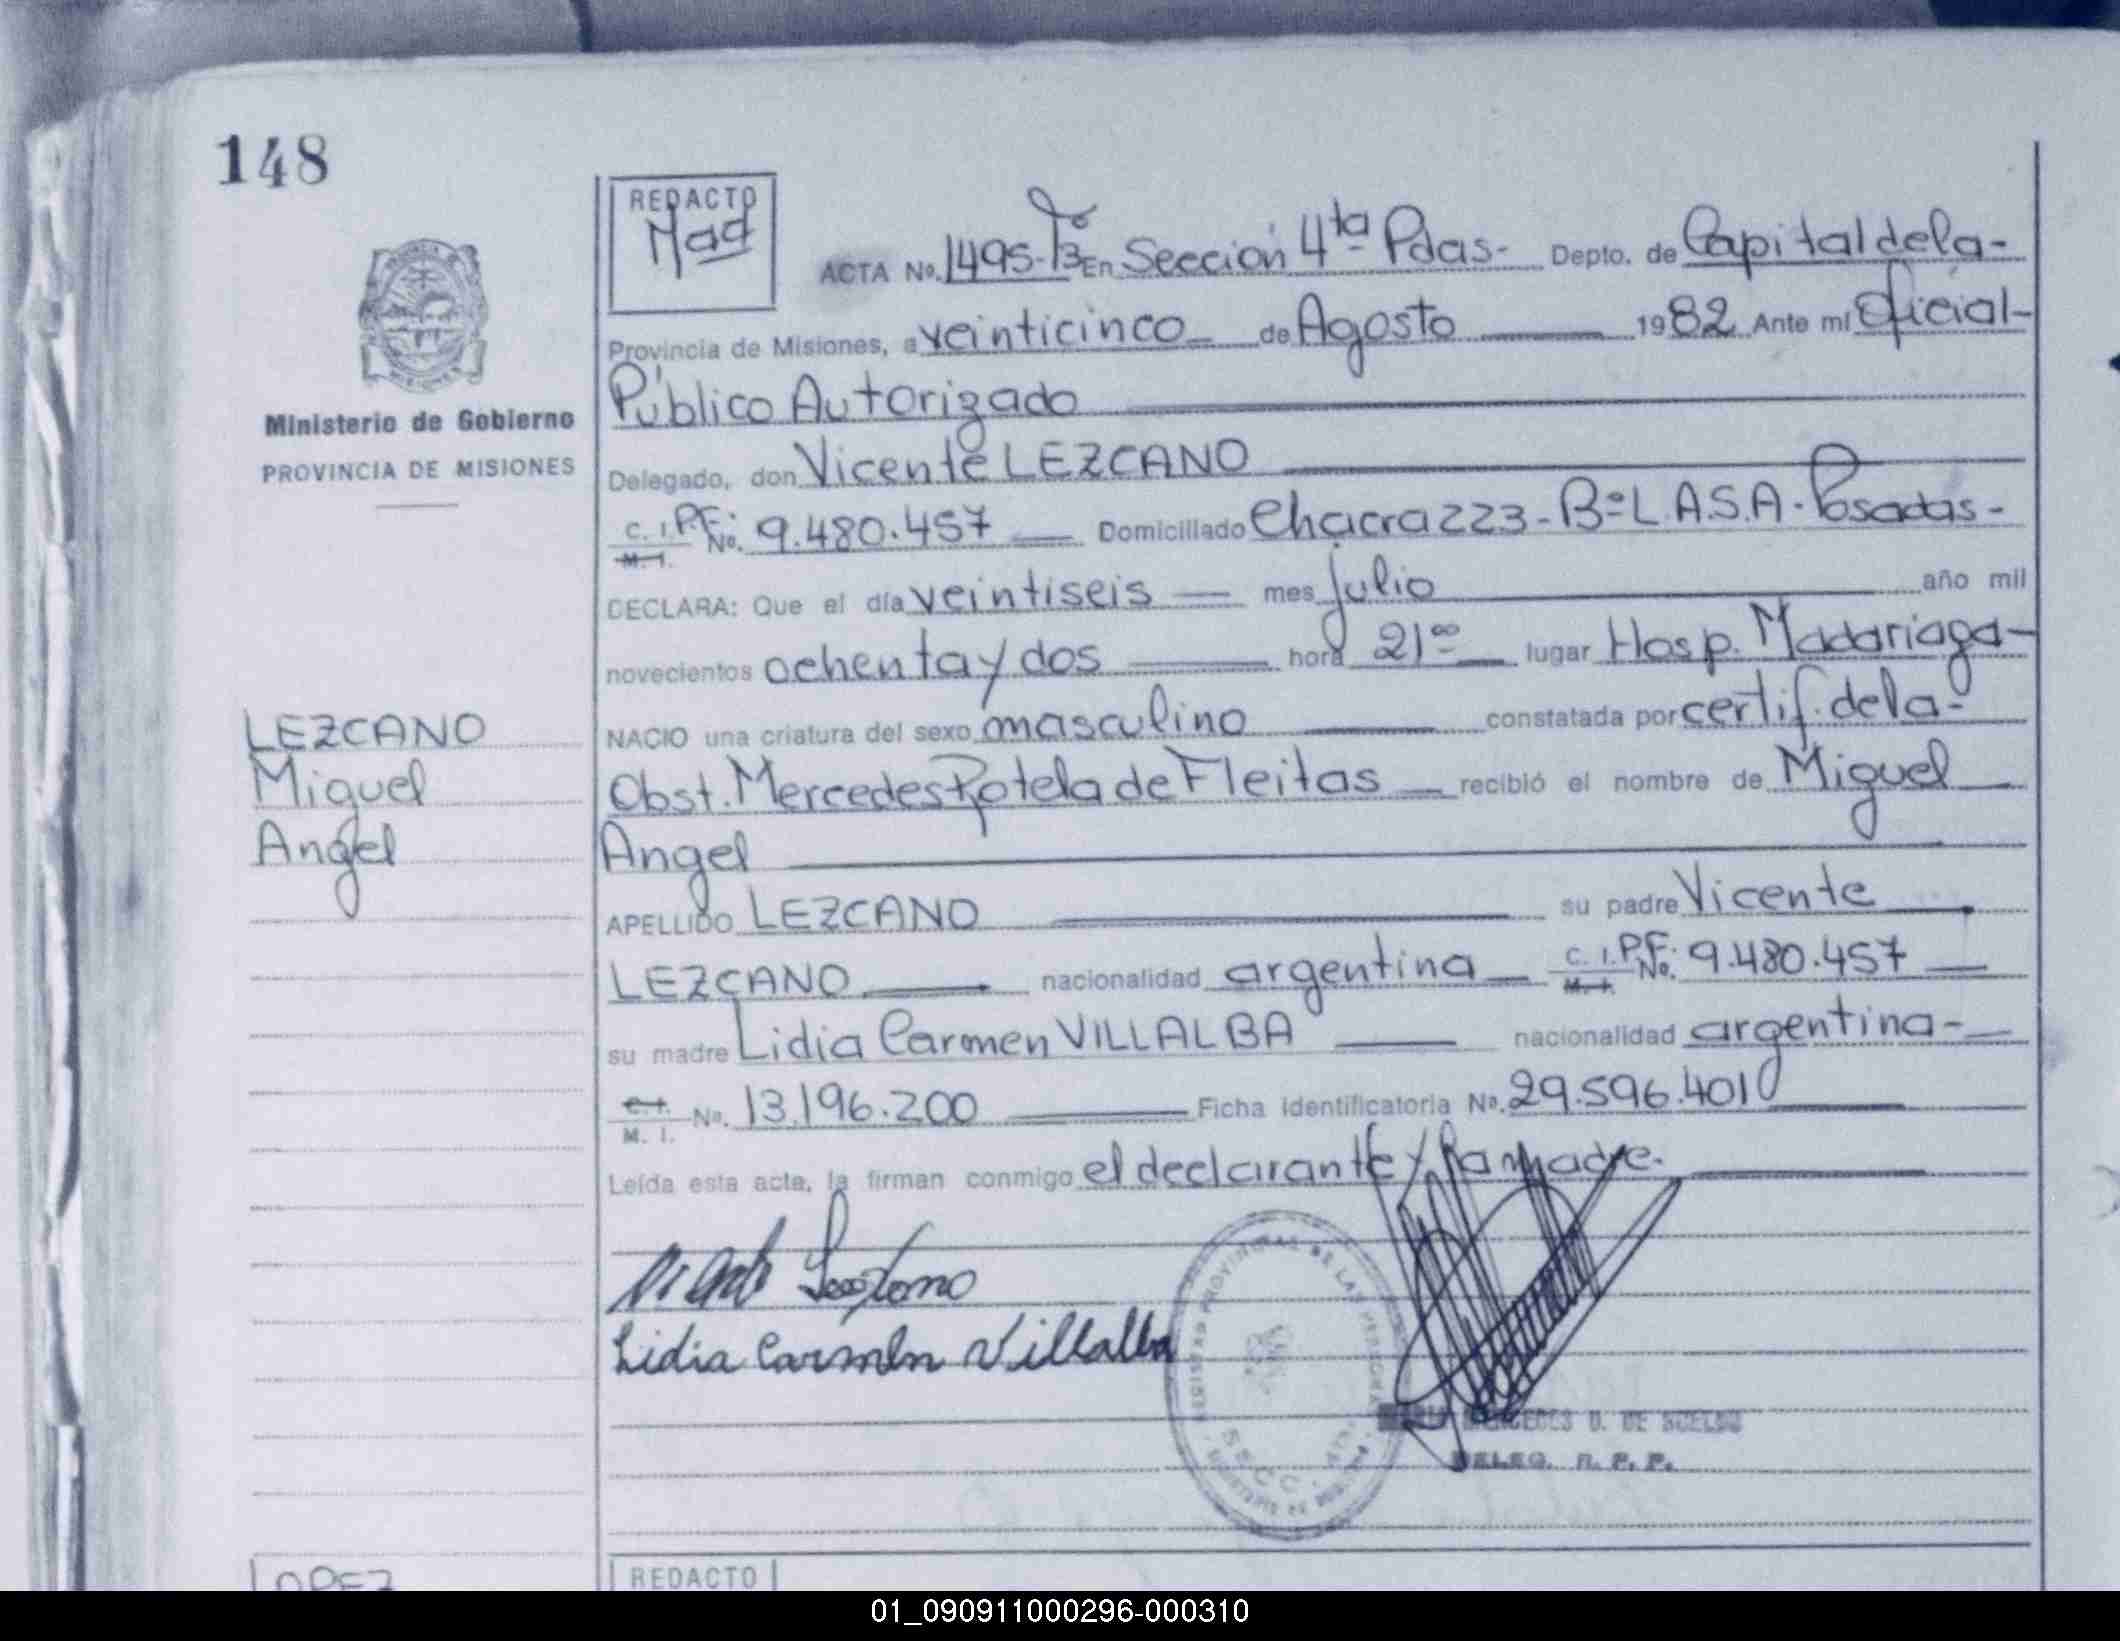 148
Ministerio de Gobierno
PROVINCIA DE MISIONES
LEZCANO
Miguel
Angel
REDACTO
Mad
ACTA No. 1495-Tº3 En Sección 4ta Pdas- Depto. de Capital de la-
Provincia de Misiones, a veinticinco de Agosto 1982 Ante mí Oficial-
Público Autorizado
Delegado, don Vicente LEZCANO
C. I. P.F. M. I. No. 9.480.457 Domiciliado Chacra 223-Bº L.A.S.A. Posadas-
DECLARA: Que el día veintiseis mes julio año mil
novecientos ochenta y dos hora 21ºº lugar Hosp. Madariaga-
NACIO una criatura del sexo masculino constatada por certif. de la-
Obst. Mercedes Rotela de Fleitas recibió el nombre de Miguel
Angel
APELLIDO LEZCANO su padre Vicente
LEZCANO nacionalidad argentina C. I. P.F. M. I. No. 9.480.457
su madre Lidia Carmen VILLALBA nacionalidad argentina-
C. I. M. I. No. 13.196.200 Ficha identificatoria No. 29.596.401
Leída esta acta, la firman conmigo el declarante y la madre.
Lidia Carmen Villalba
REGISTRO PROVINCIAL DE LAS PERSONAS
SECC. 4ta
DELEG. R. P. P.
LOPEZ
REDACTO
01_090911000296-000310